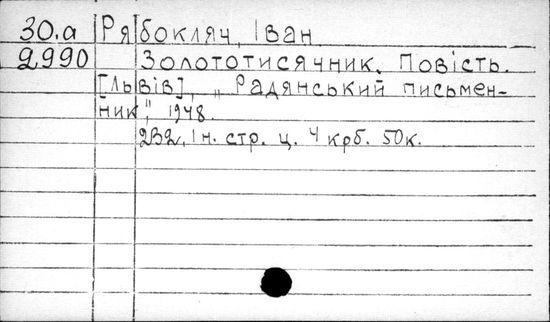 30.а Рябокляч, Іван
2990 Золототисячник. Повість.
[Львів], „Радянський письмен-
ник", 1948.
232, 1 н. стр. ц. 4 крб. 50к.